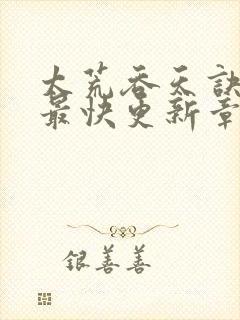 大荒吞天訣
最快更新章
银善善